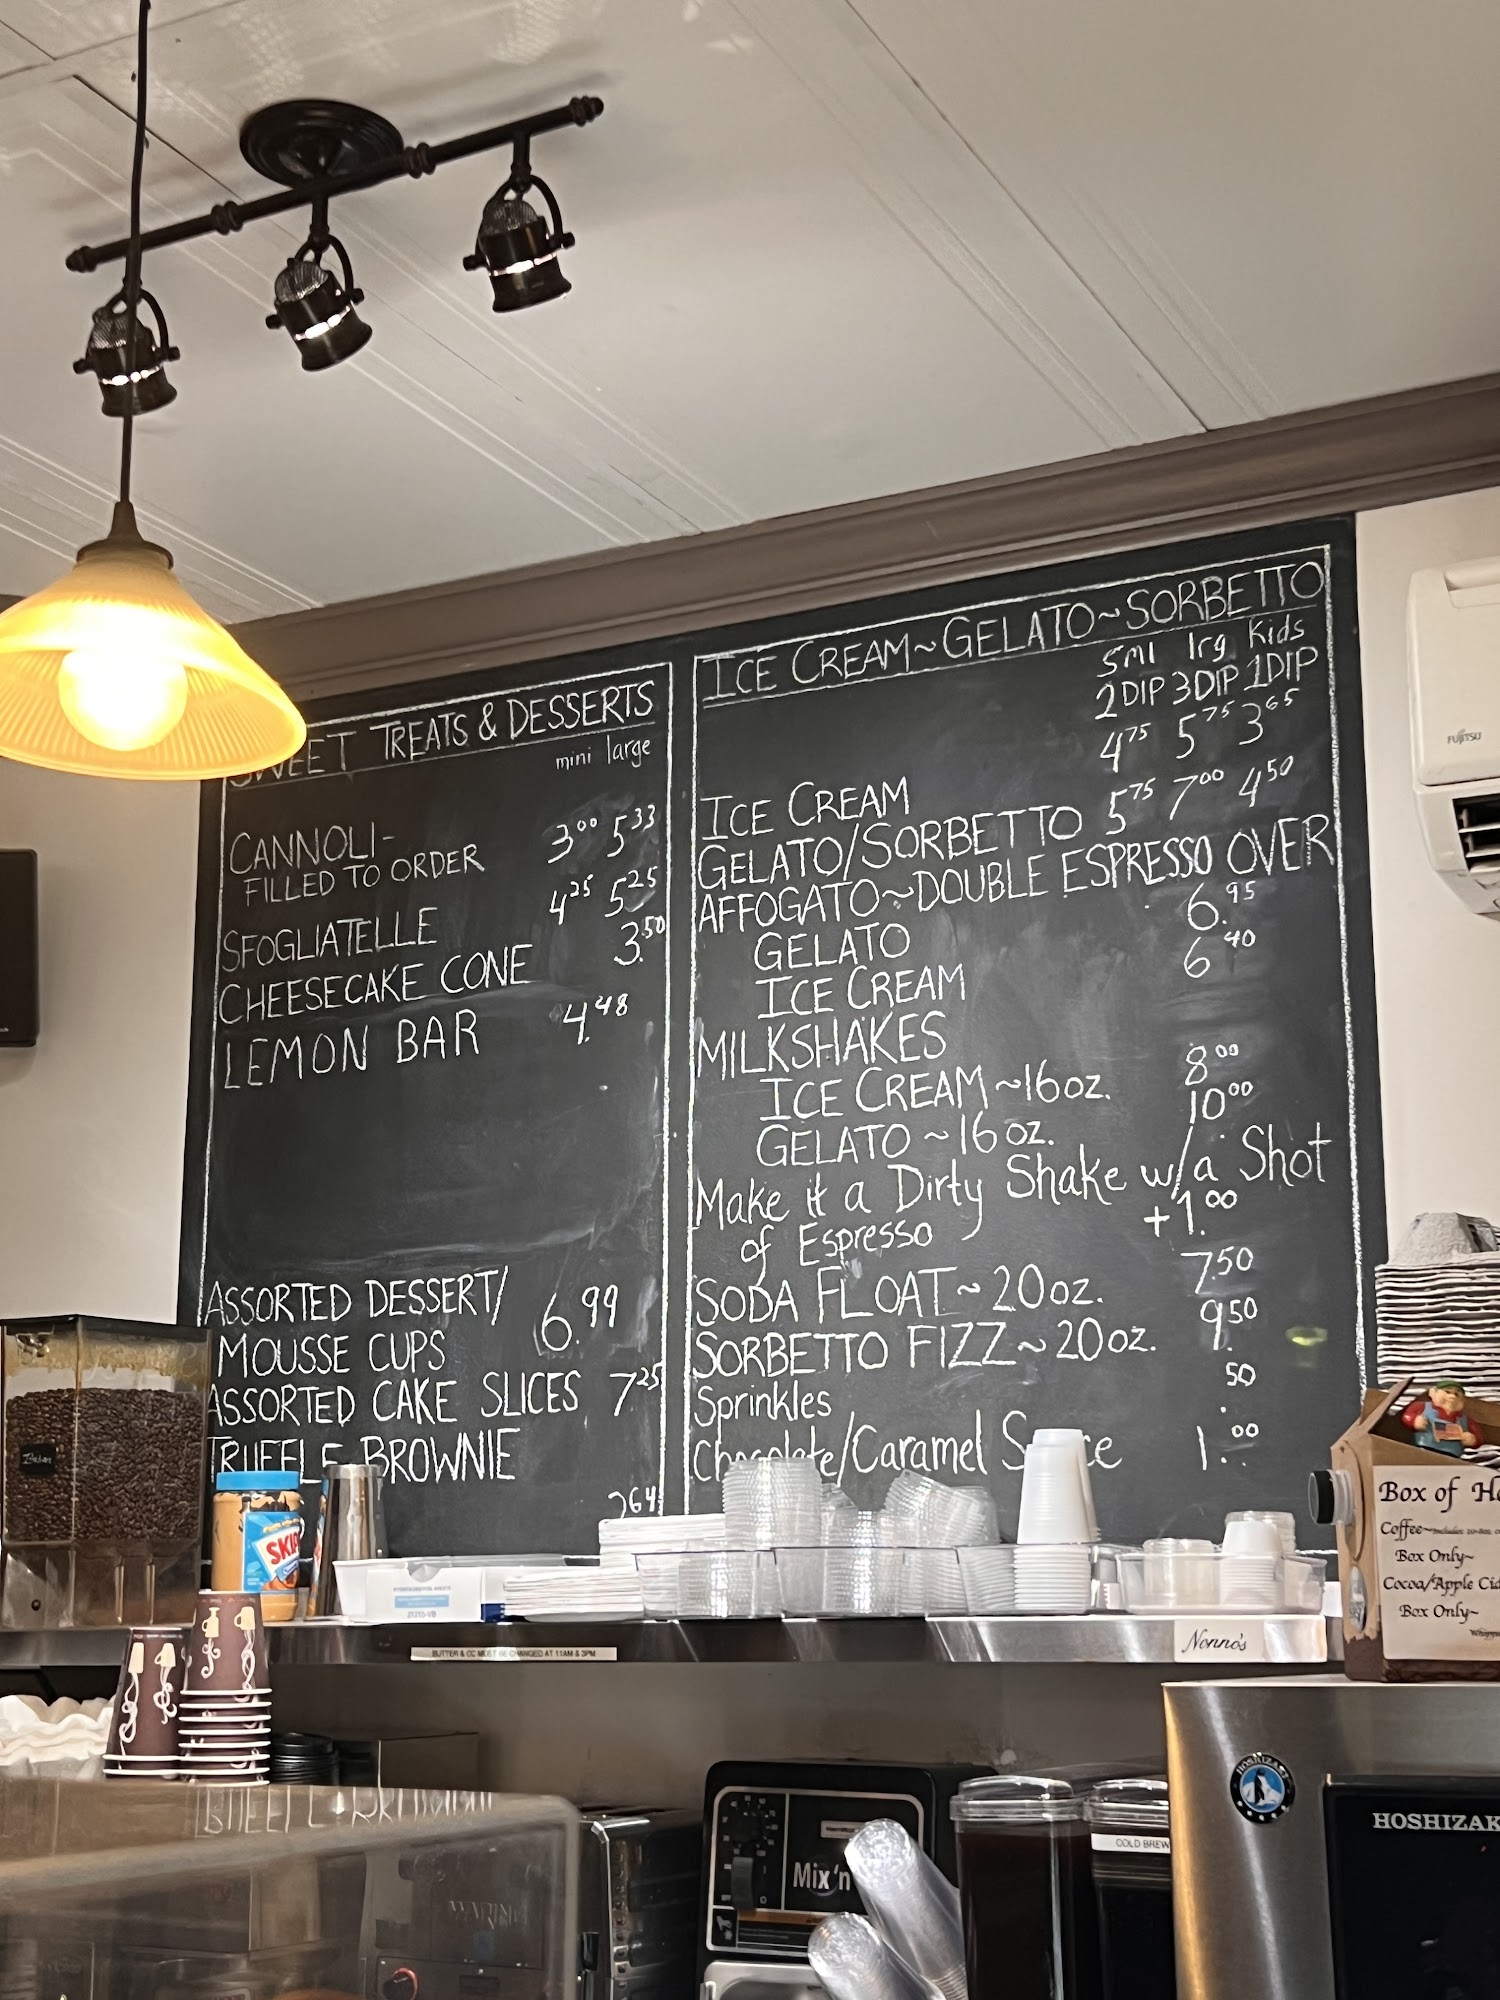 SWEET TREATS & DESSERTS
mini large
CANNOLI-
FILLED TO ORDER 3.00 5.33
SFOGLIATELLE 4.25 5.25
CHEESECAKE CONE 3.50
LEMON BAR 4.48
ASSORTED DESSERT/
MOUSSE CUPS 6.99
ASSORTED CAKE SLICES 7.25
TRUFFLE BROWNIE
ICE CREAM~GELATO~SORBETTO
sml lrg Kids
2DIP 3DIP 1DIP
ICE CREAM 4.75 5.75 3.65
GELATO/SORBETTO 5.75 7.00 4.50
AFFOGATO~DOUBLE ESPRESSO OVER
GELATO 6.95
ICE CREAM 6.40
MILKSHAKES
ICE CREAM~16oz. 8.00
GELATO~16oz. 10.00
Make it a Dirty Shake w/a Shot
of Espresso +1.00
SODA FLOAT~20oz. 7.50
SORBETTO FIZZ~20oz. 9.50
Sprinkles .50
Chocolate/Caramel Sauce 1.00
FUJITSU
SKIPPY
BUTTER & CC MUST BE CHANGED AT 11AM & 3PM
Nonno's
Box of
Coffee~
Box Only~
Cocoa/Apple
Box Only~
HOSHIZAKI
HOSHIZAK
Mix'n
COLD BREW
WARING